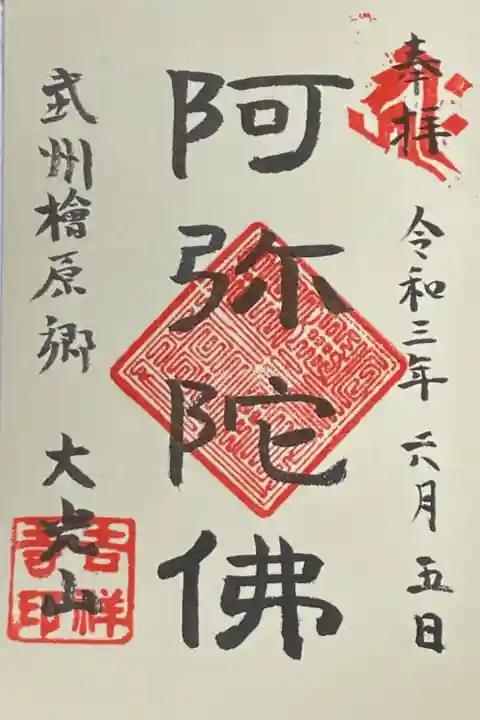 奉拝
令和三年 六月五日
阿弥陀佛
武州檜原郷 大光山
吉祥
寺印